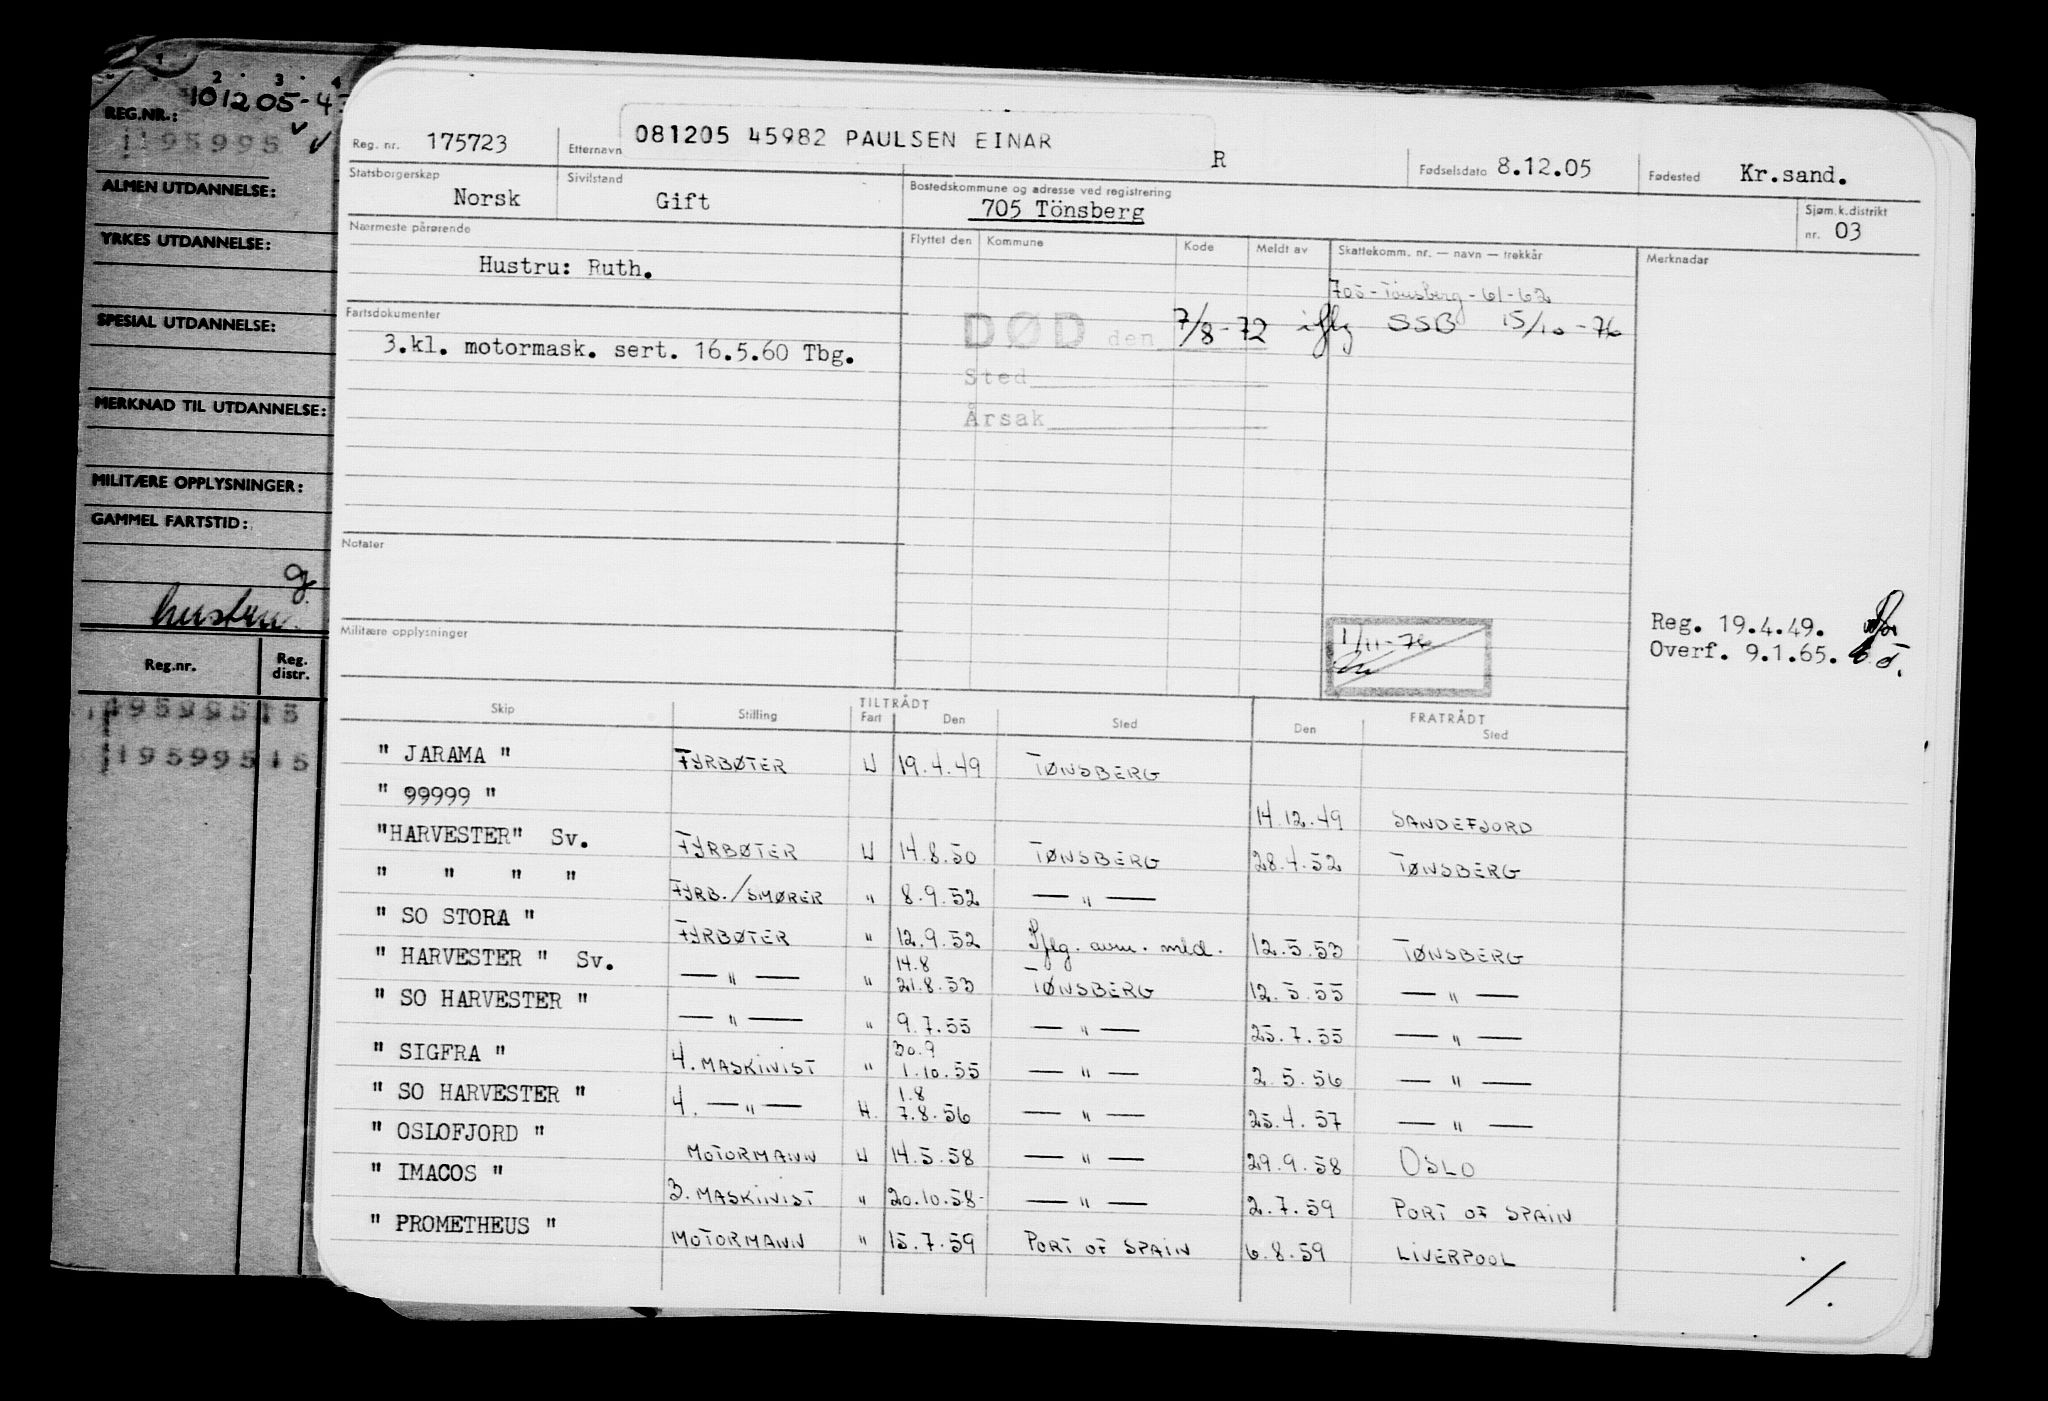 1 2 3 4
REG.NR.: 101205-4
195995
ALMEN UTDANNELSE:
YRKES UTDANNELSE:
SPESIAL UTDANNELSE:
MERKNAD TIL UTDANNELSE:
MILITÆRE OPPLYSNINGER:
GAMMEL FARTSTID:
hustru
Reg.nr. Reg. distr.
19599515
19599515
Reg. nr. 175723 Etternavn 081205 45982 PAULSEN EINAR R Fødselsdato 8.12.05 Fødested Kr.sand.
Statsborgerskap Norsk Sivilstand Gift Bostedskommune og adresse ved registrering 705 Tönsberg Sjøm.k.distrikt nr. 03
Nærmeste pårørende Flyttet den Kommune Kode Meldt av Skattekomm. nr. — navn — trekkår Merknader
Hustru: Ruth.
705-Tönsberg-61-62
Fartsdokumenter
DØD den 7/8-72 iflg SSB 15/10-76
3.kl. motormask. sert. 16.5.60 Tbg.
Sted
Årsak
Notater
Militære opplysninger
1/11-76
Reg. 19.4.49.
Overf. 9.1.65.
Skip Stilling TILTRÅDT Fart Den Sted FRATRÅDT Den Sted
" JARAMA " FYRBØTER U 19.4.49 TØNSBERG
" 99999 " 14.12.49 SANDEFJORD
"HARVESTER" Sv. FYRBØTER U 14.8.50 TØNSBERG 28.4.52 TØNSBERG
" " " " FYRB./SMØRER " 8.9.52 — " —
" SO STORA " FYRBØTER " 12.9.52 Iflg. avm. mld. 12.5.53 TØNSBERG
" HARVESTER " Sv. — " — " 14.8 21.8.53 TØNSBERG 12.5.55 — " —
" SO HARVESTER " — " — " 9.7.55 — " — 25.7.55 — " —
" SIGFRA " 4. MASKINIST " 30.9 1.10.55 — " — 2.5.56 — " —
" SO HARVESTER " 4. — " — H. 1.8 7.8.56 — " — 25.4.57 — " —
" OSLOFJORD " MOTORMANN U 14.5.58 — " — 29.9.58 OSLO
" IMACOS " 3. MASKINIST " 20.10.58- — " — 2.7.59 PORT OF SPAIN
" PROMETHEUS " MOTORMANN " 15.7.59 PORT OF SPAIN 6.8.59 LIVERPOOL
/.